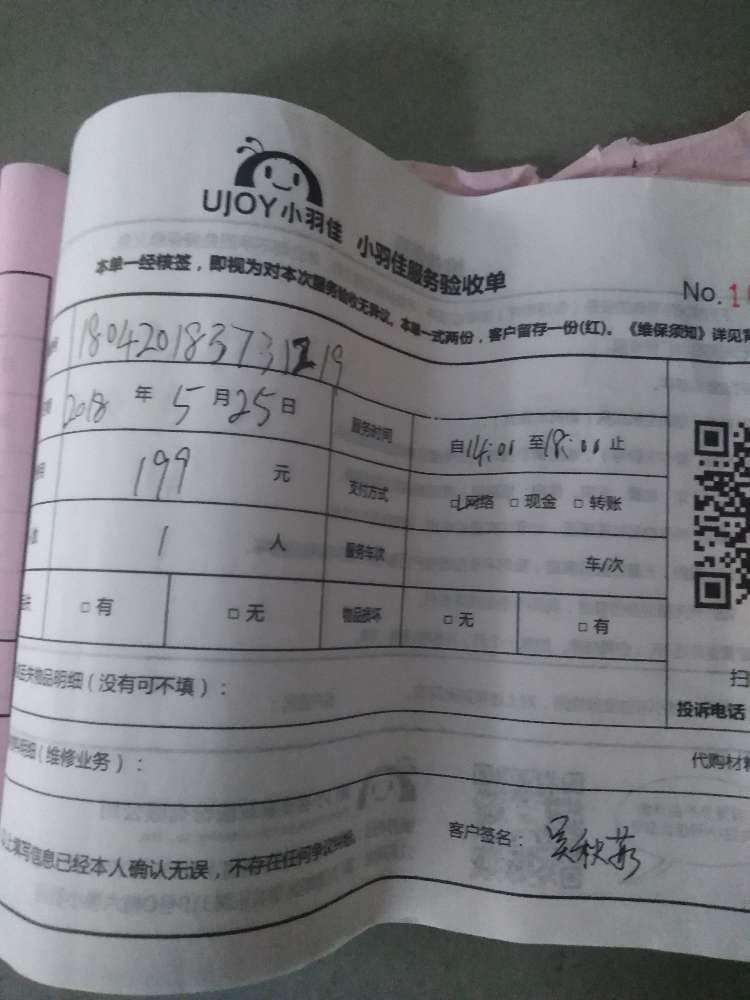 UJOY小羽佳 小羽佳服务验收单
本单一经核签，即视为对本次服务验收无异议。本单一式两份，客户留存一份(红)。《维保须知》详见背
No.1
2018年5月25日 服务时间 自14:00至18:00止
199元 支付方式 网络 □ 现金 □ 转账
1人 服务车次 车/次
□ 有 □ 无 物品损坏 □ 无 □ 有
丢失物品明细（没有可不填）：
扫
投诉电话
明细（维修业务）：
代购材料
客户签名：吴秋燕
以上填写信息已经本人确认无误，不存在任何争议